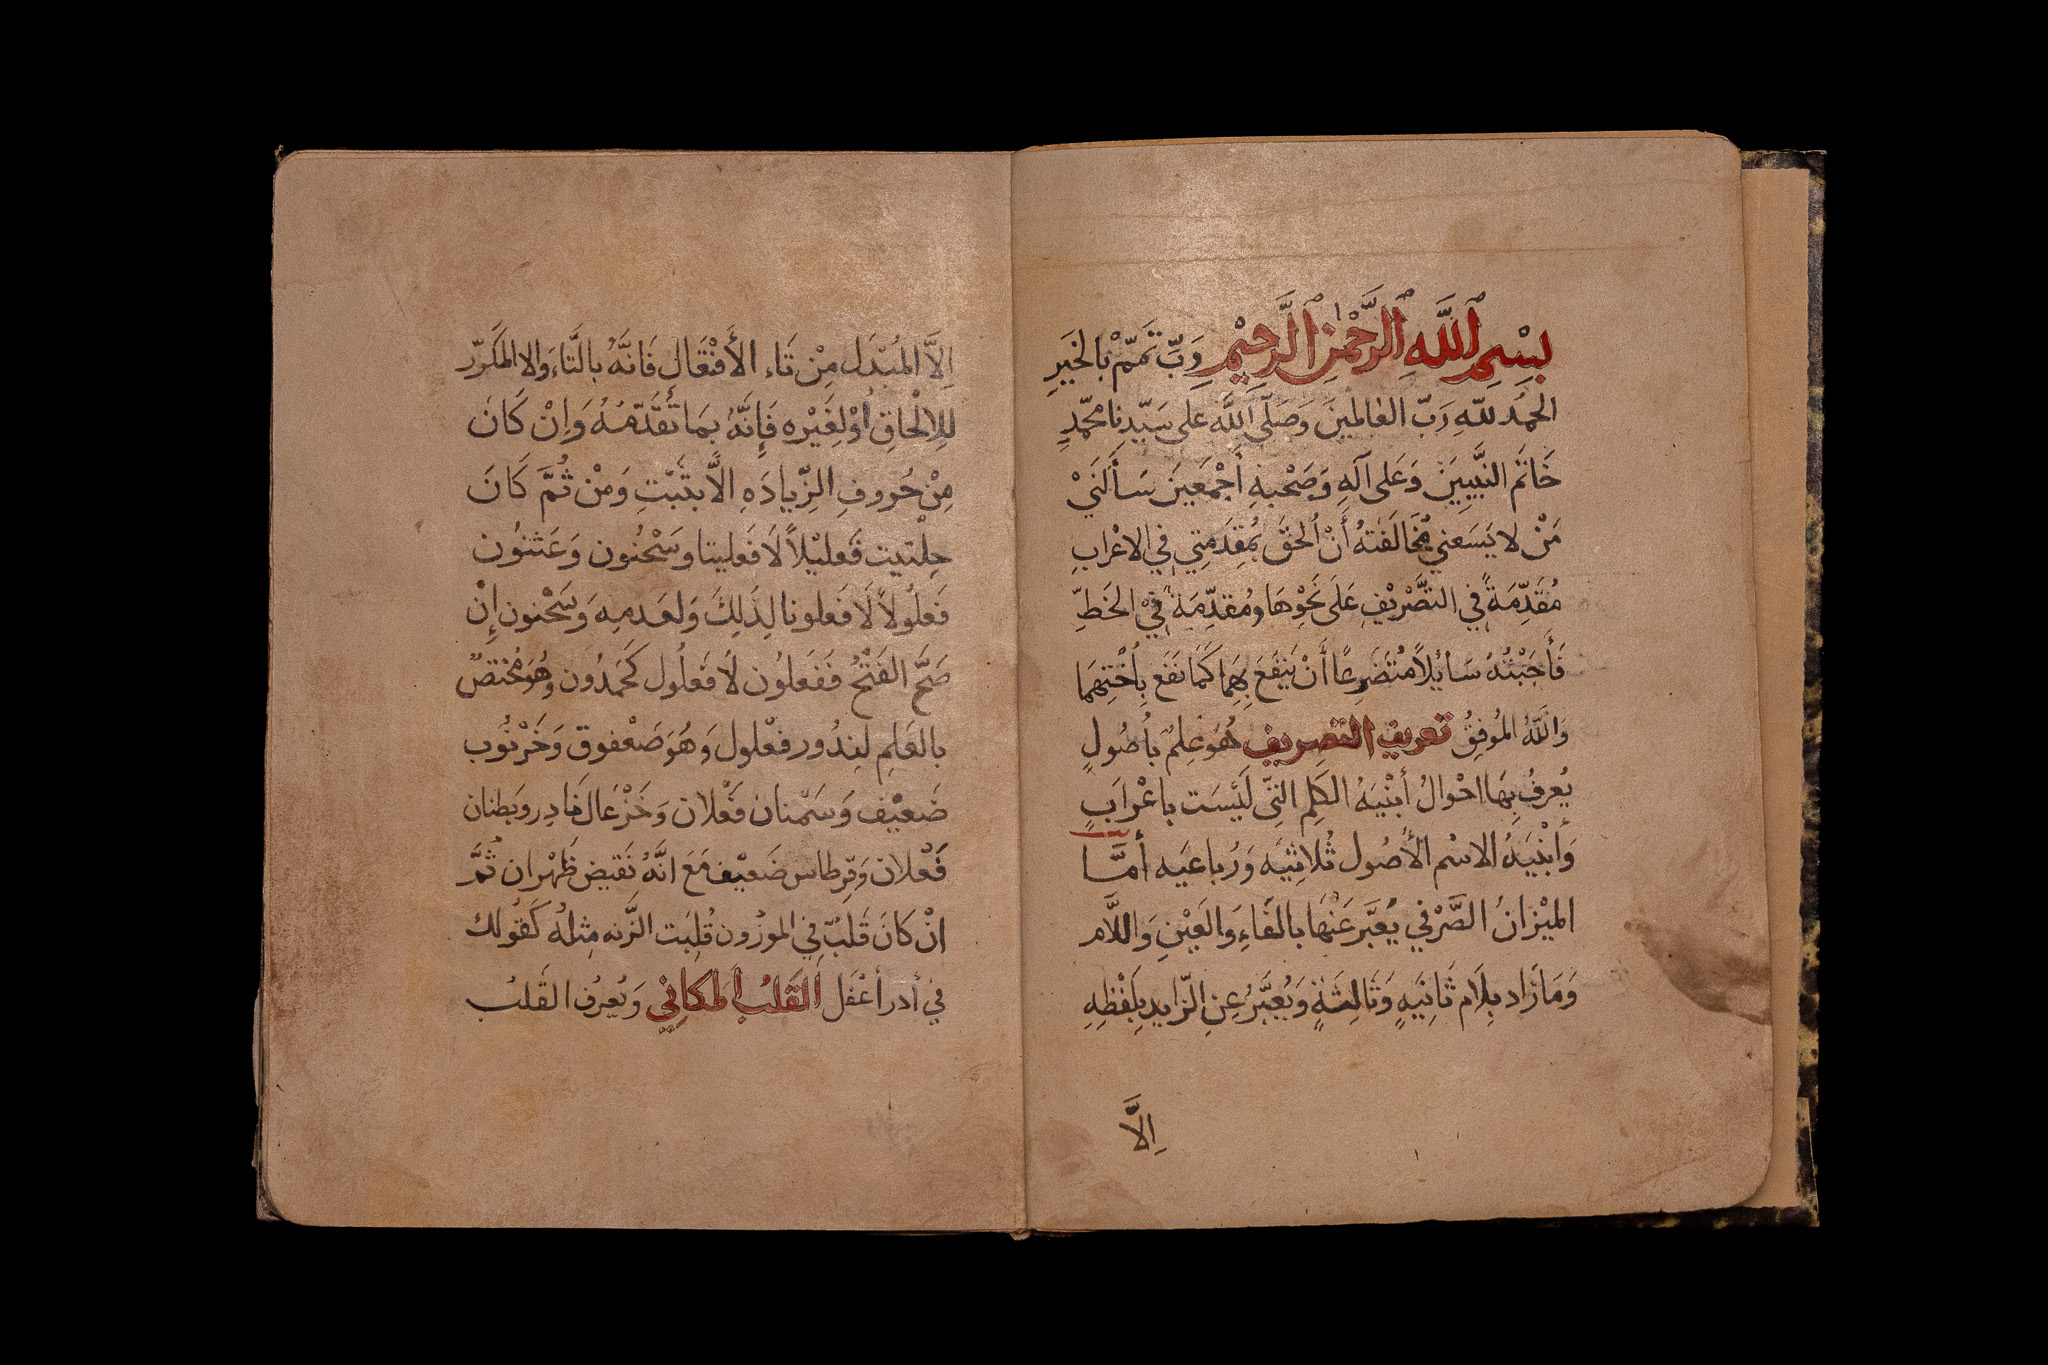 بِسْمِ ٱللَّهِ ٱلرَّحْمٰنِ ٱلرَّحِيْمِ وَرَبِّ تَمِّمْ بِالخَيرِ
الحمْدُ للّهِ رَبّ العٰالمينَ وَصَلَّى اللَّه على سَيّدِنا محمّدٍ
خَاتَم النبَّيِينَ وَعَلى آلهِ وَصَحْبهِ أَجْمَعينَ سَأَلَنَيْ
مَنْ لا يَسَعني مُخَالَفَتهُ أَنْ اُلحقَ بمُقَدّمَتِي فِي الاعْرابِ
مُقَدِّمَةً فِي التصَّرْيفِ عَلَى نَحْوِهَا ومُقدِّمَةً فيْ الخَطِّ
فَأَجَبْتُهُ سَائِلاً مُتَضَرِعًا أَنْ يَنفَعَ بِهِمَا كَمَا نَفَع بِاُخْتِهِمَا
وَاللَّهُ المُوفِقُ تعريف التصريف هُوَ عِلمٌ بأُصُولٍ
يُعرفُ بِهَا احْوالُ أبْنيَهُ الكَلِمِ التِّي لَيْسَت باعْرَابٍ
وَأبْنيَهُ الاسْم الأُصُول ثُلاثيَه وَرُباعيَه أمَّا
الميْزانُ الصَّرْفي يُعبَّر عَنْهَا بالفَاءِ وَالعَيْنِ وَاللَّام
وَمَا زَاد بِلَام ثَانِيَهٍ وَثَالِثَةٍ وَيُعبَّرُ عِنِ الزّايدِ بِلَفْظِهِ
اِلَّا
اِلاَّ المُبْدَل مِنْ تَاءِ الأَفْتَعَالِ فَانَّهُ بالتَّاءِ وَالا المكَرّر
للِالْحَاقِ أوْ لِغَيْره فَإنَّهُ بِمَا تَقَدّمُهُ وَاِنْ كَانَ
مِنْ حُرُوفِ الزّيادَهِ الاَّ بثَبْتِ وَمنْ ثُمَّ كَانَ
حِلْتيت فَعليْلاً لاَ فَعليتا وسَحْنُون وَعَثنُون
فَعلُولاً لَا فَعلونا لِذَلِكَ وَلعَدمِهِ وَسَحْنون إنْ
صَحَّ الفَتْحُ فَفَعلوُن لاَ فَعلُول كَحَمدُون وَهُو مُختصٌ
بالعَلمِ لنِدُور فعْلول وَهُوَ صَعْفوق وَخَرْنُوب
ضَعيْف وَسَمْنان فَعْلان وَخَزْعَال نَادر وَبطنان
فَعْلان وَقِرطاس ضَعيْف مَعَ انَّهُ نَقيض ظَهْران ثُمَّ
انْ كَانَ قَلبٌ فِي الموزُون قُلِبَت الزّنه مِثلهُ كَقُولك
في أدر أعْفَل القَلبُ المكاَنِيْ وَيُعرف القَلبُ